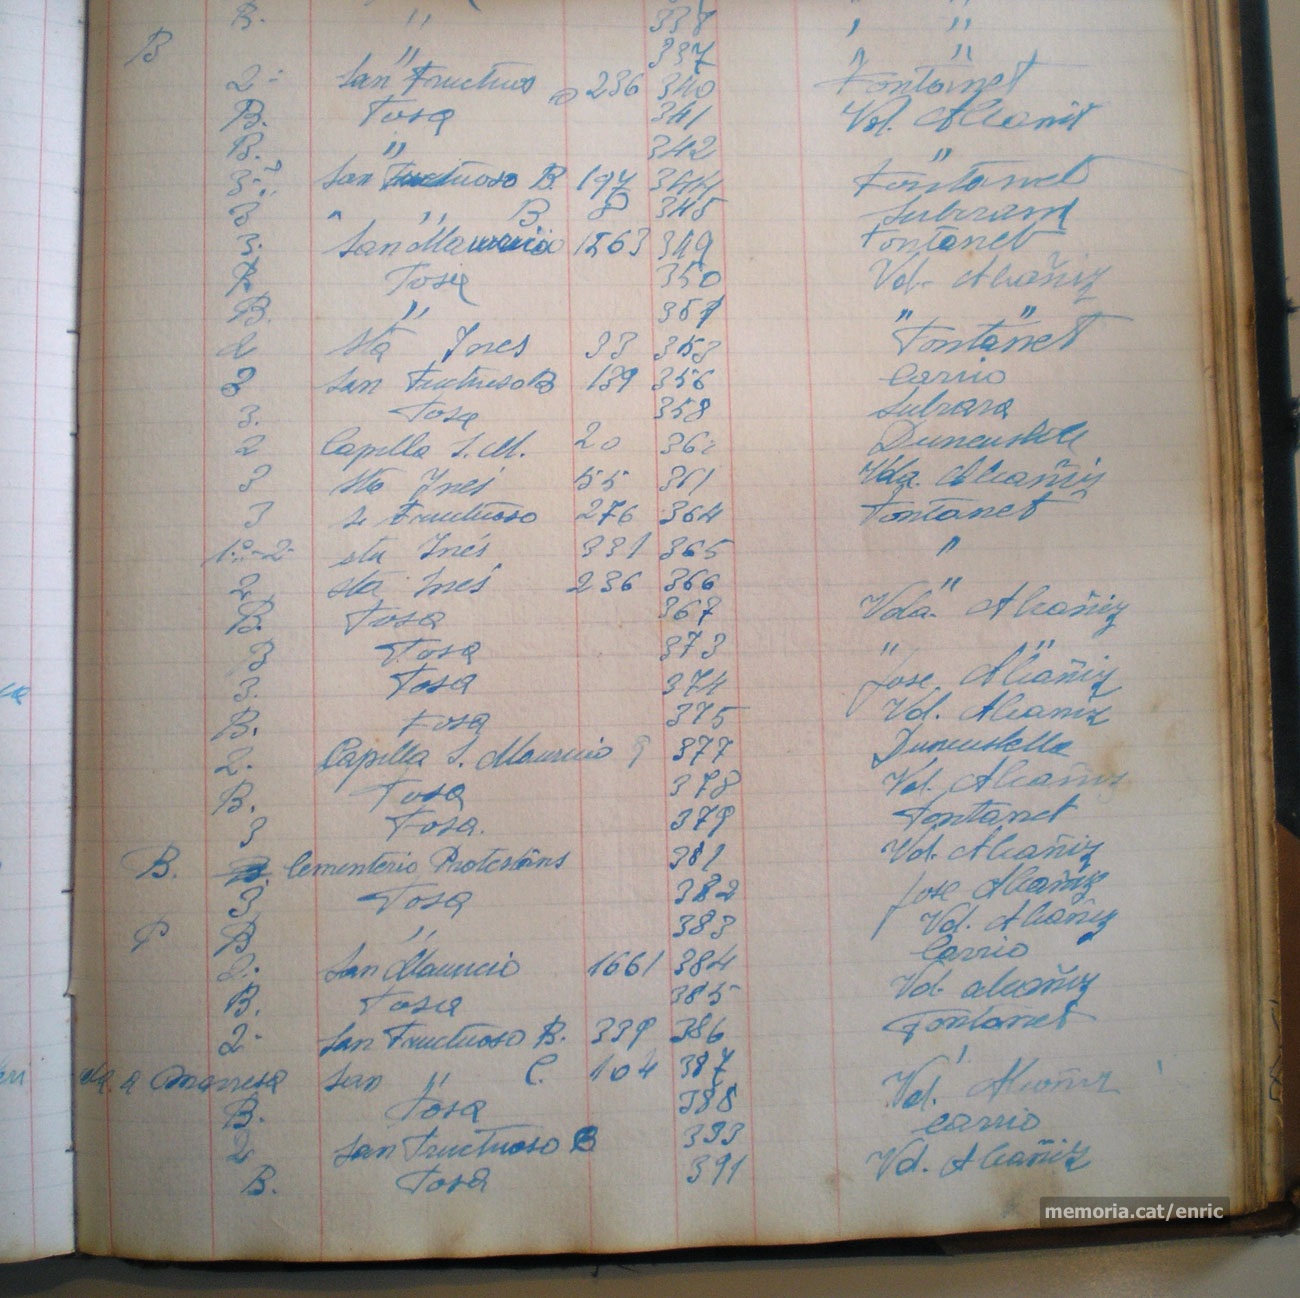 B. " 338 " "
B " 337 " "
2- San Fructuoso 236 340 Fontanet
B. Fosa 341 Vd. Alcañiz
B. " 342 "
3- San Fructuoso B. 197 344 Fontanet
3 " " B. 8 345 Subirana
3. San Mauricio 1563 349 Fontanet
B Fosa 350 Vd. Alcañiz
B. " 351 " "
2 Sta Ines 33 353 Fontanet
3 San Fructuoso B 139 356 Carrio
3. Fosa 358
2 Capilla S. M. 20 Duncustella
3 Sta Inés 55 361 Vda. Alcañiz
3 S. Fructuoso 276 364 Fontanet
1º-2- sta Inés 331 365 "
2. sta Inés 236 366 "
B. Fosa 367 Vda. Alcañiz
B Fosa 373 " "
3. Fosa 374 Jose Alcañiz
B. Fosa 375 Vd. Alcañiz
2. Capilla S. Mauricio 9 377 Duncustella
B. Fosa 378 Vd. Alcañiz
3 Fosa. 379 Fontanet
B. Cementerio Protestans 381 Vd. Alcañiz
3. Fosa 382 Jose Alcañiz
P B " 383 Vd. Alcañiz
2. San Mauricio 1661 384 Carrio
B. Fosa 385 Vd. alcañiz
2- San Fructuoso B. 339 386 Fontanet
a Manresa San " C. 104 387 '
B. Fosa 388 Vd. Alcañiz
2 San Fructuoso B 393 Carrio
B. Fosa 391 Vd. Alcañiz
memoria.cat/enric